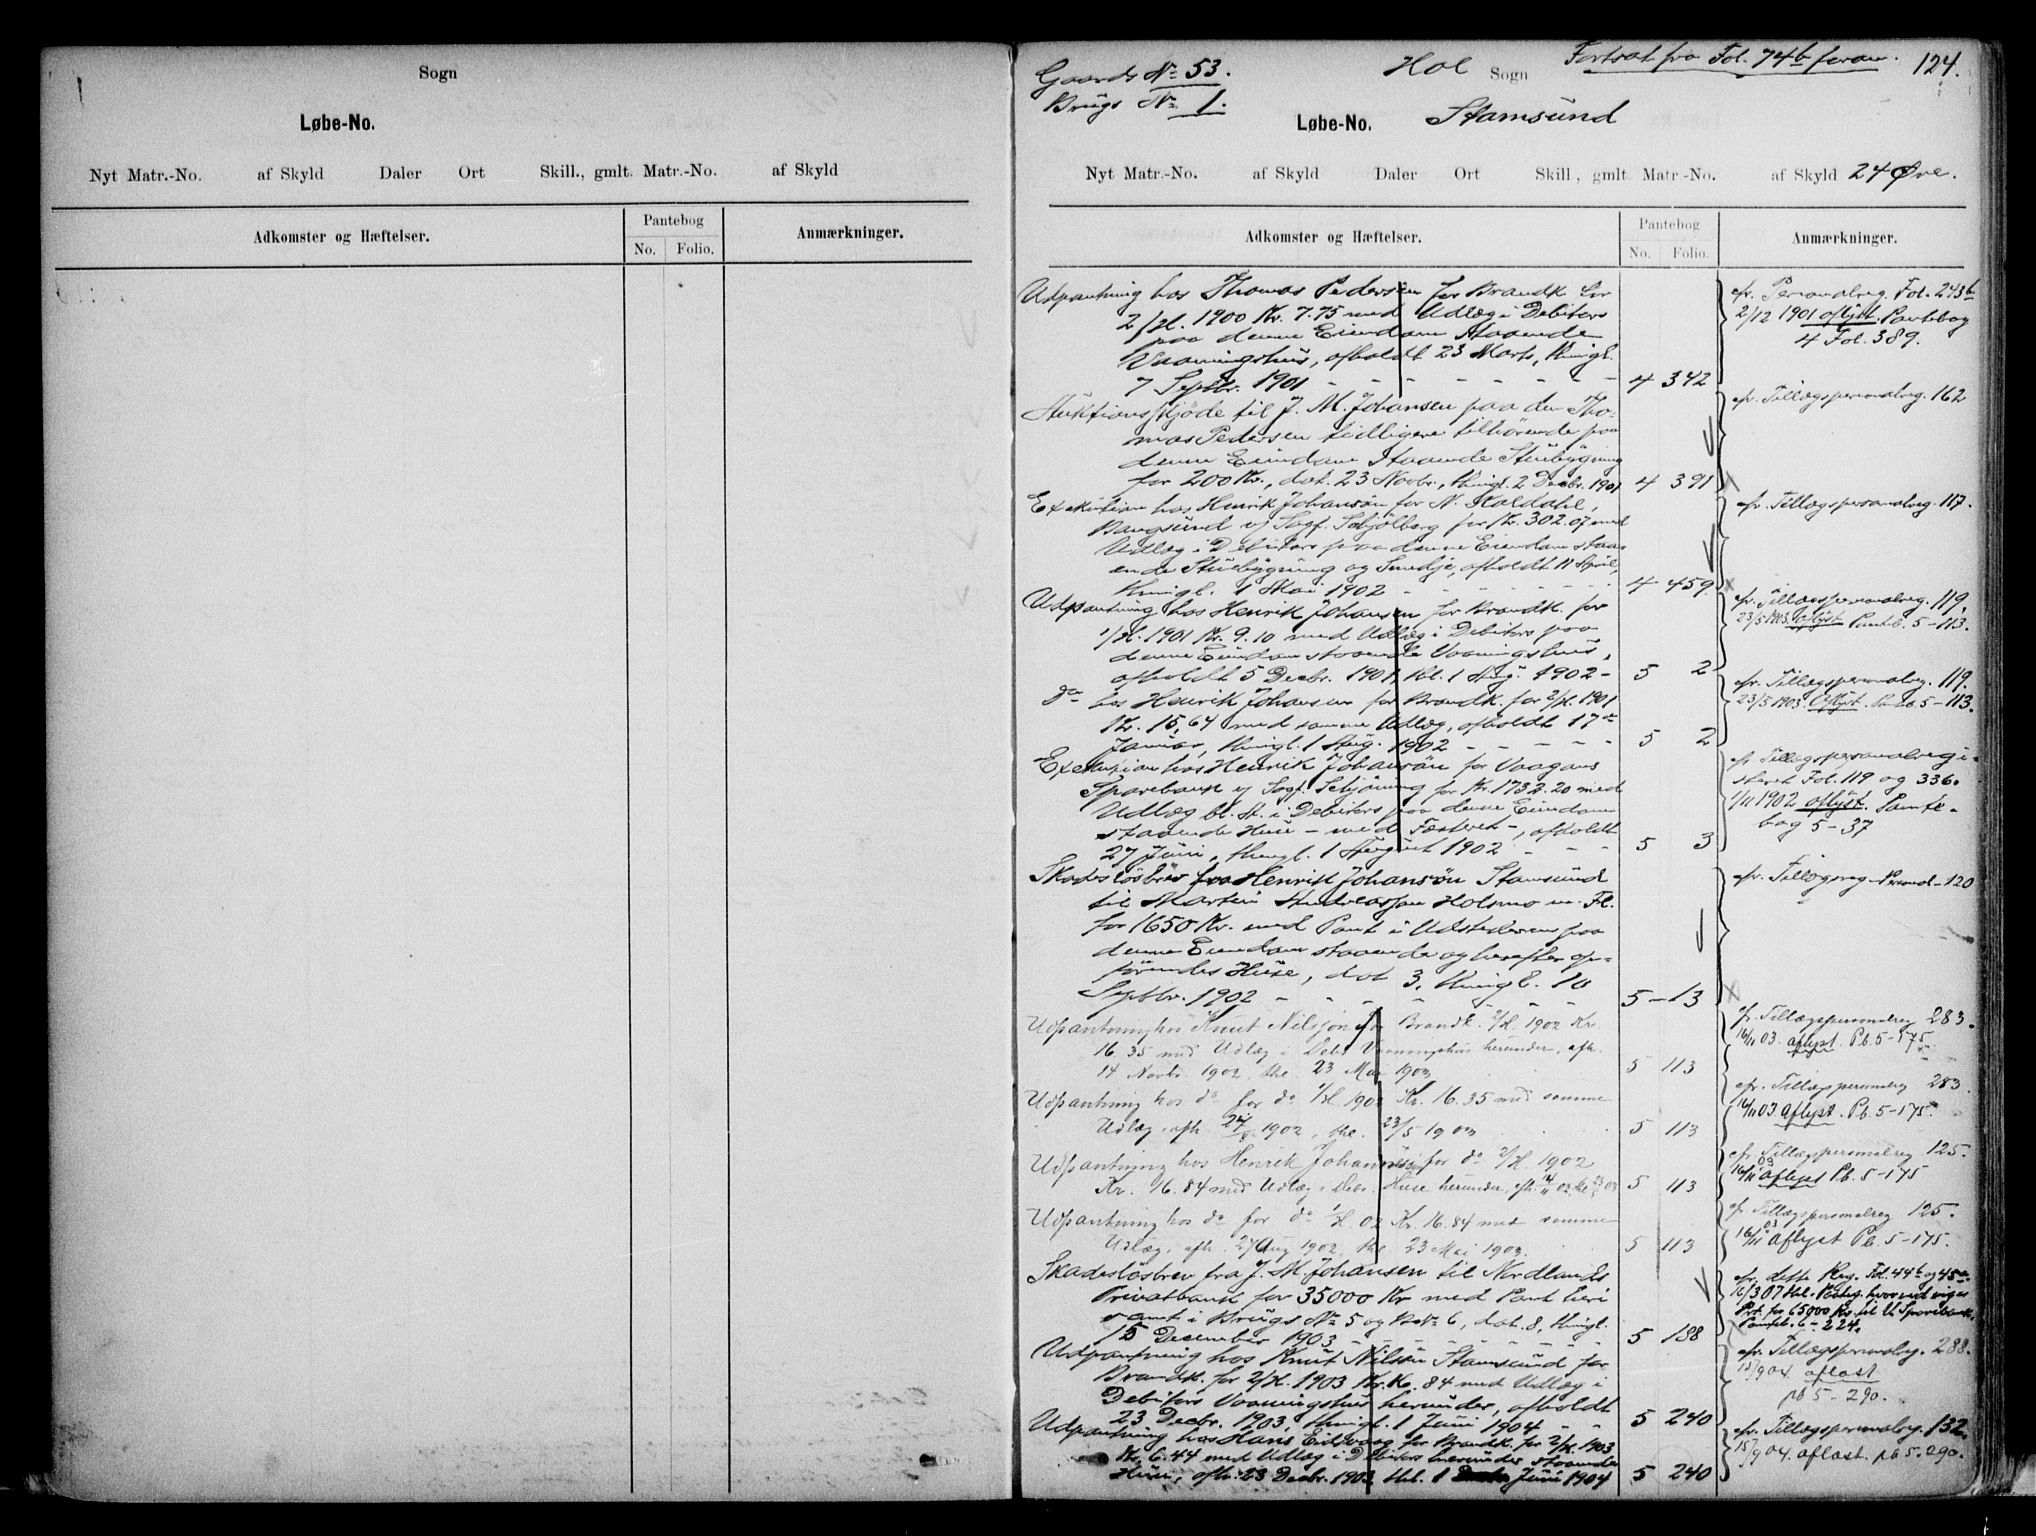 Sogn
Løbe-No.
Nyt Matr.-No. af Skyld Daler Ort Skill., gmlt. Matr.-No. af Skyld
Adkomster og Hæftelser.
Pantebog
No. Folio.
Anmærkninger.
Gaards No 53.
Brugs No 1.
Hol Sogn
Fortsat fra Fol. 74b foran.
124.
Løbe-No. Stamsund
Nyt Matr.-No. af Skyld Daler Ort Skill., gmlt. Matr.-No. af Skyld 24 Øre.
Adkomster og Hæftelser.
Pantebog
No. Folio.
Anmærkninger.
Udpantning hos Thomas Pedersen for Brandk. for
2/H. 1900 Kr. 7.75 med Udlæg i Debitors
paa denne Eiendom staaende
Vaaningshus, afholdt 23 Marts, thingl.
7 Septbr. 1901 - - - - - - 4 342
cfr. Personalreg. Fol. 243b
2/12 1901 aflyst. Pantebog
4 Fol. 389.
Auktionsskjøde til J. M. Johansen paa den Tho-
mas Pedersen tidligere tilhørende paa
denne Eiendom staaende Stuebygning
for 200 Kr., dat. 23 Novbr., thingl. 2 Decbr. 1901 4 391
cfr. Tillægspersonalreg. 162
Exekution hos Henrik Johansøn for N. Koldahl,
Bangsund v/ Sagf. Schjølberg for Kr. 302.07 med
Udlæg i Debitors paa denne Eiendom staa-
ende Stuebygning og Smedje, afholdt 11 April,
thingl. 1 Mai 1902 - - - - - 4 459
cfr. Tillægspersonalreg. 117.
Udpantning hos Henrik Johansen for Brandk. for
1/H. 1901 Kr. 9.10 med Udlæg i Debitors paa
denne Eiendom staaende Vaaningshus,
afholdt 5 Decbr. 1901, thl. 1 Aug. 1902 - 5 2
cfr. Tillægspersonalreg. 119.
23/5 1903. aflyst Panteb. 5-113.
do hos Henrik Johansen for Brandk. for 2/H. 1901
Kr. 15,64 med samme Udlæg, afholdt 17de
Januar, thingl. 1 Aug. 1902 - - - - - 5 2
cfr. Tillægspersonalreg. 119.
23/5 1903. Aflyst. Pb 5-113.
Exekution hos Henrik Johansøn for Vaagans
Sparebank v/ Sagf. Schjøning for Kr. 1732.20 med
Udlæg bl. A. i Debitors paa denne Eiendom
staaende Huse - med Fæsteret -, afholdt
27 Juni, thingl. 1 August 1902 - - - 5 3
cfr Tillægspersonalregi-
steret Fol. 119 og 336.
1/11 1902 aflyst. Pante-
bog 5-37
Skadesløsbrev fra Henrik Johansøn Stamsund
til Martin Andreassen Holsmo m. Fl.
for 1650 Kr. med Pant i Udstederens paa
denne Eiendom staaende og herefter op-
førendes Huse, dat 3, thingl. 10
Septbr. 1902 - - - - - - 5-13
cfr. Tillægsreg Personal-120
Udpantning hos Knut Nilsøn for Brandk. 2/H. 1902 Kr.
16.35 med Udlæg i Debs Vaaningshus herunder, afh.
14 Novbr. 1902 thl. 23 Mai 1903 5 113
cfr. Tillægspersonalreg 283.
16/11 03. aflyst. Pb. 5-175.
Udpantning hos do for do 1/H. 1902 Kr. 16.35 med samme
Udlæg, afh. 1902, thl. 23/5 1903 5 113
cfr. Tillægspersonalreg 283.
16/11 03. aflyst. Pb. 5-175.
Udpantning hos Henrik Johansøn for do 2/H. 1902
Kr. 16.84 med Udlæg i Debs. Huse herunder, afh. 5 113
cfr. Tillægspersonalreg 125.
16/11 03 aflyst Pb. 5-175
Udpantning hos do for do 1/H. 02 Kr. 16.84 med samme
Udlæg, afh. 27 Aug 1902, thl. 23 Mai 1903. 5 113
cfr Tillægspersonalreg 125.
16/11 03 aflyst Pb. 5-175.
Skadesløsbrev fra J. M. Johansen til Nordlands
Privatbank for 35000 Kr med Pant heri
samt i Brugs No 5 og B No 6, dat. 8, thingl.
15 December 1903 - - - - - 5 188
cfr. dette Reg. Fol. 44b og 45a
12/3 07 thl. Pateg. hvorved viger
Prt. for 65000 Kr. til V. Sparebank,
Panteb. 6-224.
Udpantning hos Knut Nilsøn Stamsund for
Brandk. for 2/H. 1903 Kr. 16.84 med Udlæg i
Debitors Vaaningshus herunder, afholdt
23 Decbr. 1903, thingl. 1 Juni 1904 - - 5 240
cfr. Tillægspersonalreg. 288.
15/9 04. aflæst
pb 5-290.
Udpantning hos Hans Eidsvaag for Brandk. for 2/H. 1903
Kr. 6.44 med Udlæg i Debitors herunder staaende
Huse, afh. 23 Decbr. 1903 thl. 1 Juni 1904 5 240
cfr. Tillægspersonalreg. 132.
15/9 04. aflæst. pb 5. 290.